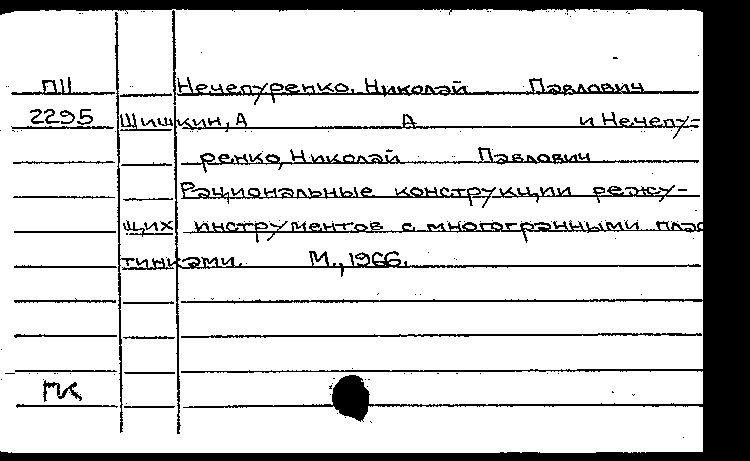 ПII Нечепуренко, Николай Павлович
2295 Шишкин, А А и Нечепу-
ренко, Николай Павлович
Рациональные конструкции режу-
щих инструментов с многогранными плас
тинками. М., 1966.
ГК